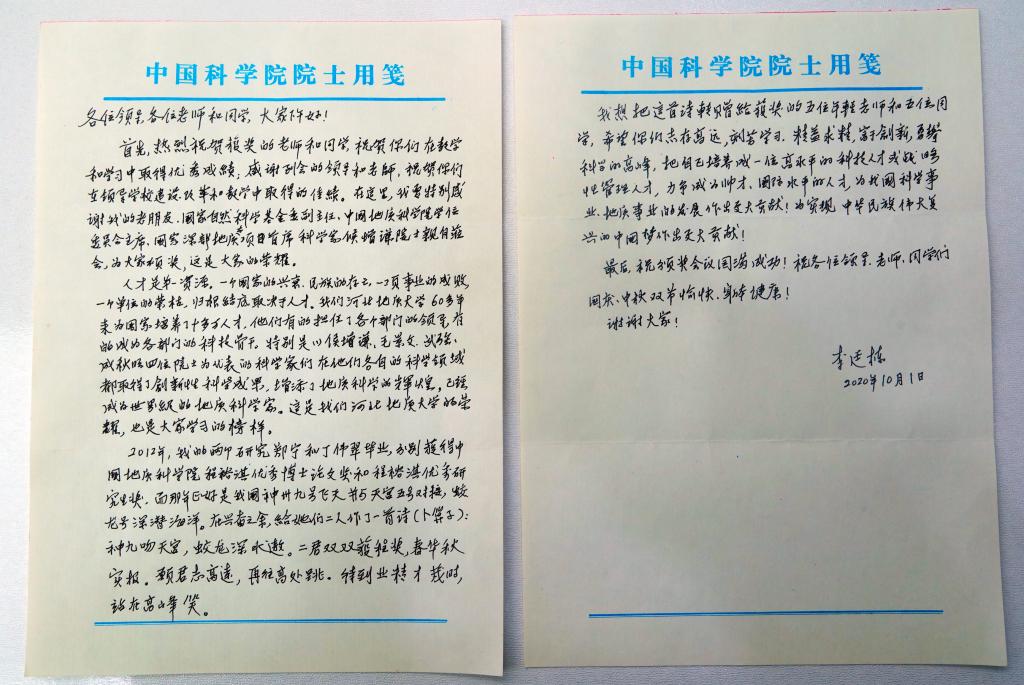 中国科学院院士用笺
各位领导、各位老师和同学，大家下午好！
首先，热烈祝贺获奖的老师和同学，祝贺你们在教学
和学习中取得优秀成绩，感谢到会的领导和老师，祝贺你们
在领导学校建设、改革和教学中取得的佳绩。在这里，我要特别感
谢我的老朋友、国家自然科学基金委副主任、中国地质科学院学位
委员会主席、国家深部地质专项首席科学家侯增谦院士亲自莅
会，为大家颁奖，这是大家的荣耀。
人才是第一资源，一个国家的兴衰、民族的存亡、一项事业的成败、
一个单位的荣枯，归根结底取决于人才。我们河北地质大学60多年
来为国家培养了十多万人才，他们有的担任了各个部门的领导，有
的成为各部门的科技骨干。特别是以侯增谦、毛景文、武强、
成秋明四位院士为代表的科学家们在他们各自的科学领域
都取得了创新性科学成果，增添了地质科学的辉煌，已经
成为世界级的地质科学家。这是我们河北地质大学的荣
耀，也是大家学习的榜样。
2012年，我的两个研究郑宁和丁伟翠毕业，分别获得中
国地质科学院程裕淇优秀博士论文奖和程裕淇优秀研
究生奖。而那年正好是我国神州九号飞天并与天宫五号对接，蛟
龙号深潜海洋。在兴奋之余，给她们二人作了一首诗（卜算子）：
神九吻天宫，蛟龙深水遨。二君双双获程奖，春华秋
实报。 愿君志高远，再往高处跳。待到业精才茂时，
站在高峰笑。
中国科学院院士用笺
我想把这首诗转赠给获奖的五位年轻老师和五位同
学，希望你们志存高远，刻苦学习，精益求精，富于创新，勇攀
科学的高峰，把自己培养成一位高水平的科技人才或战略
性管理人才，力争成为帅才、国际水平的人才，为我国科学事
业、地质事业的发展作出更大贡献！为实现中华民族伟大复
兴的中国梦作出更大贡献！
最后，祝颁奖会议圆满成功！祝各位领导、老师、同学们
国庆、中秋双节愉快、身体健康！
谢谢大家！
李廷栋
2020年10月1日